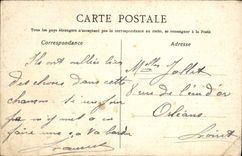 CARTE POSTALE
Tous les pays étrangers n'acceptent pas la correspondance au recto, se renseigner à la Poste
Correspondance
Adresse
Ils ont oublié bien
des choses dans cette
chanson si
en
faire une ça va barder
Melles Jallet
8 rue de l'écu d'or
Orléans
Loiret